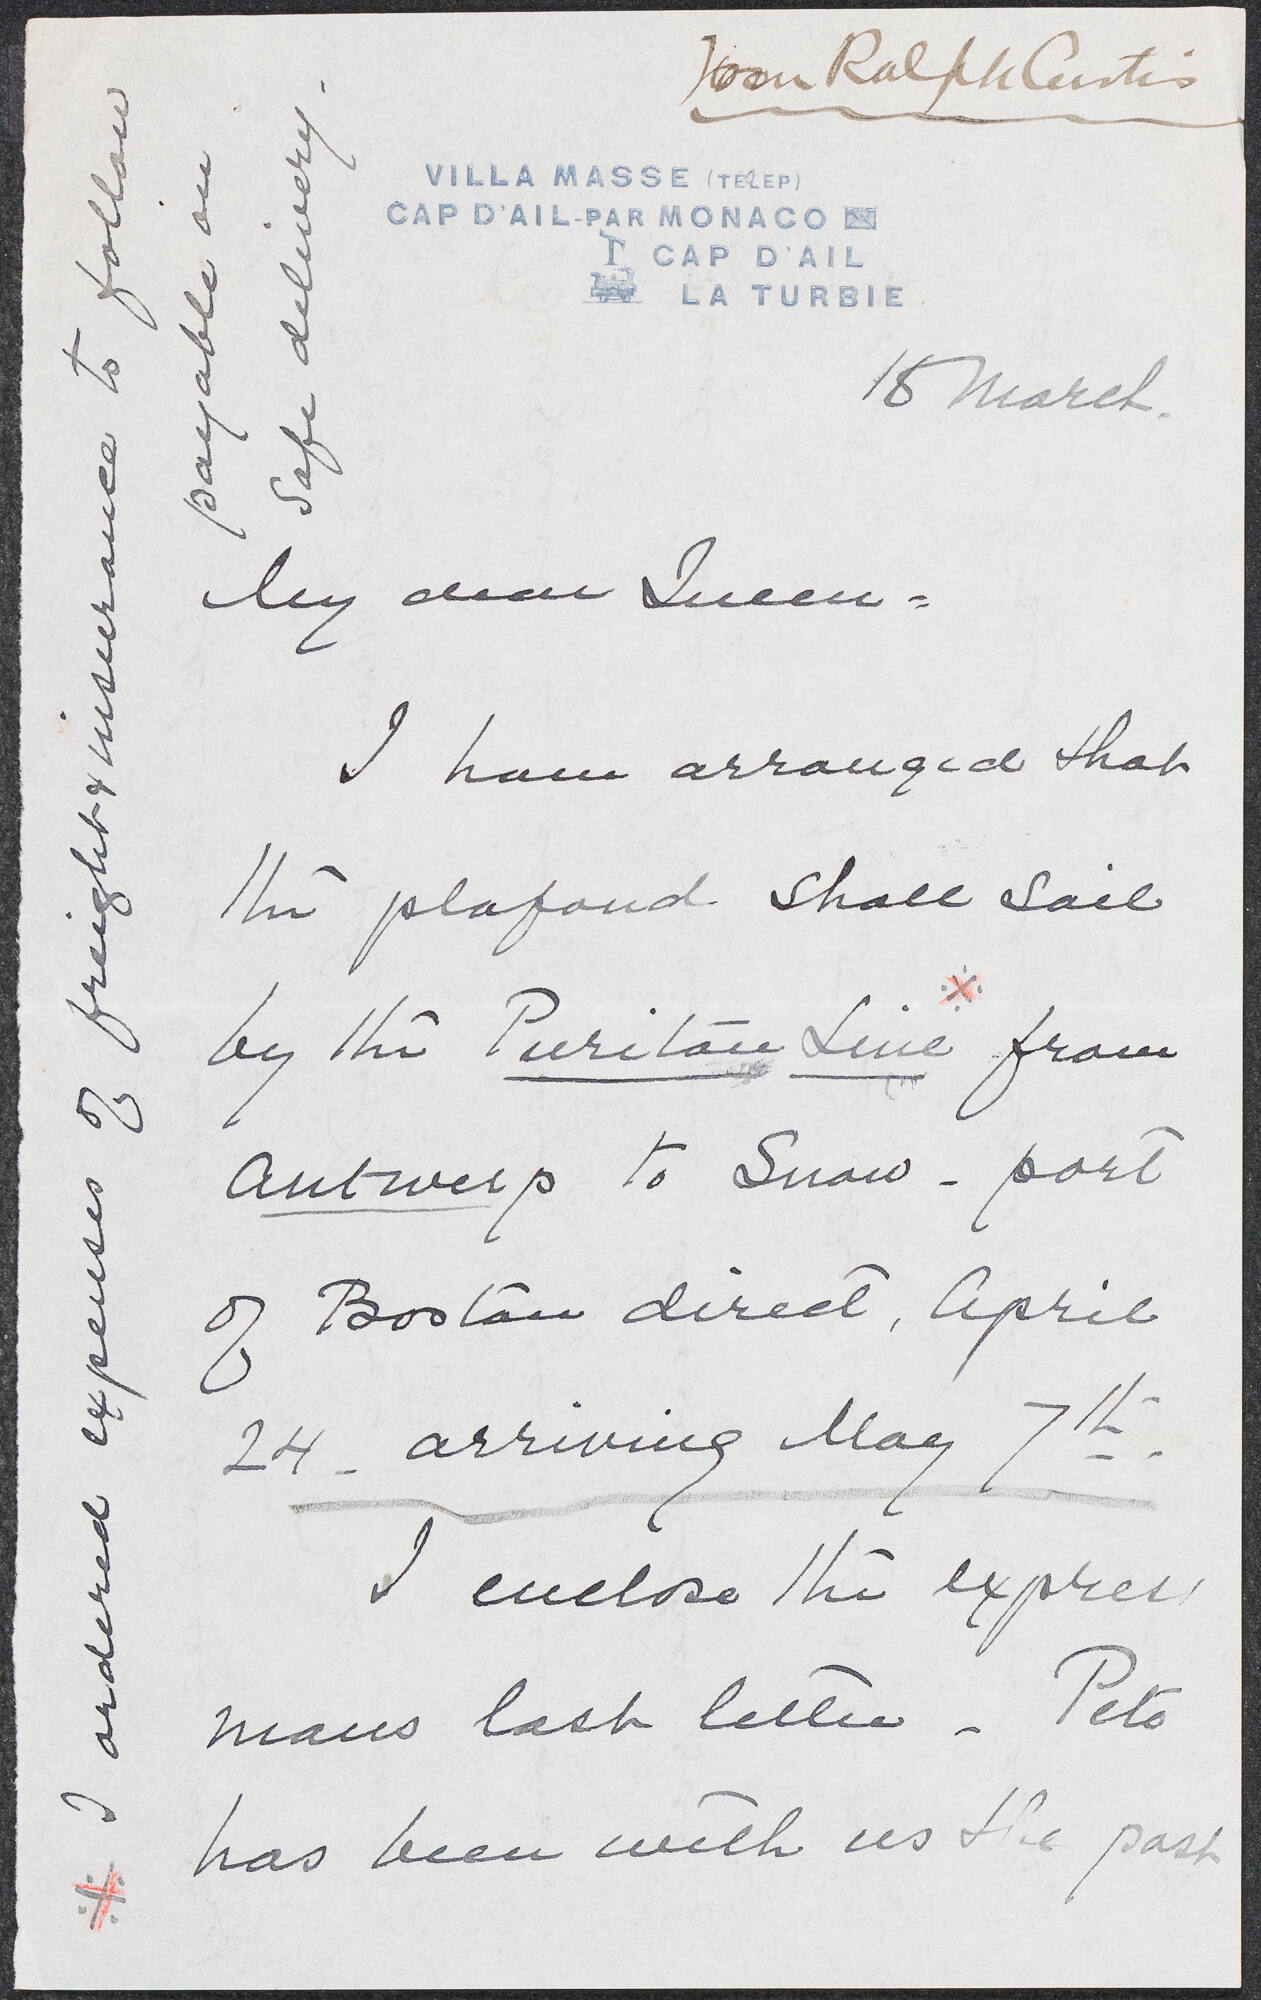 from Ralph Curtis
VILLA MASSE (TELEP)
CAP D'AIL-PAR MONACO
CAP D'AIL
LA TURBIE
18 March.
My dear Queen =
I have arranged that
the plafond shall sail
by the Puritan Line from
Antwerp to Snow - port
of Boston direct, April
24 - arriving May 7th.
I enclose the express
mans last letter - Peto
has been with us the past
I ordered expenses of freight & insurance to follow
payable on
safe delivery.